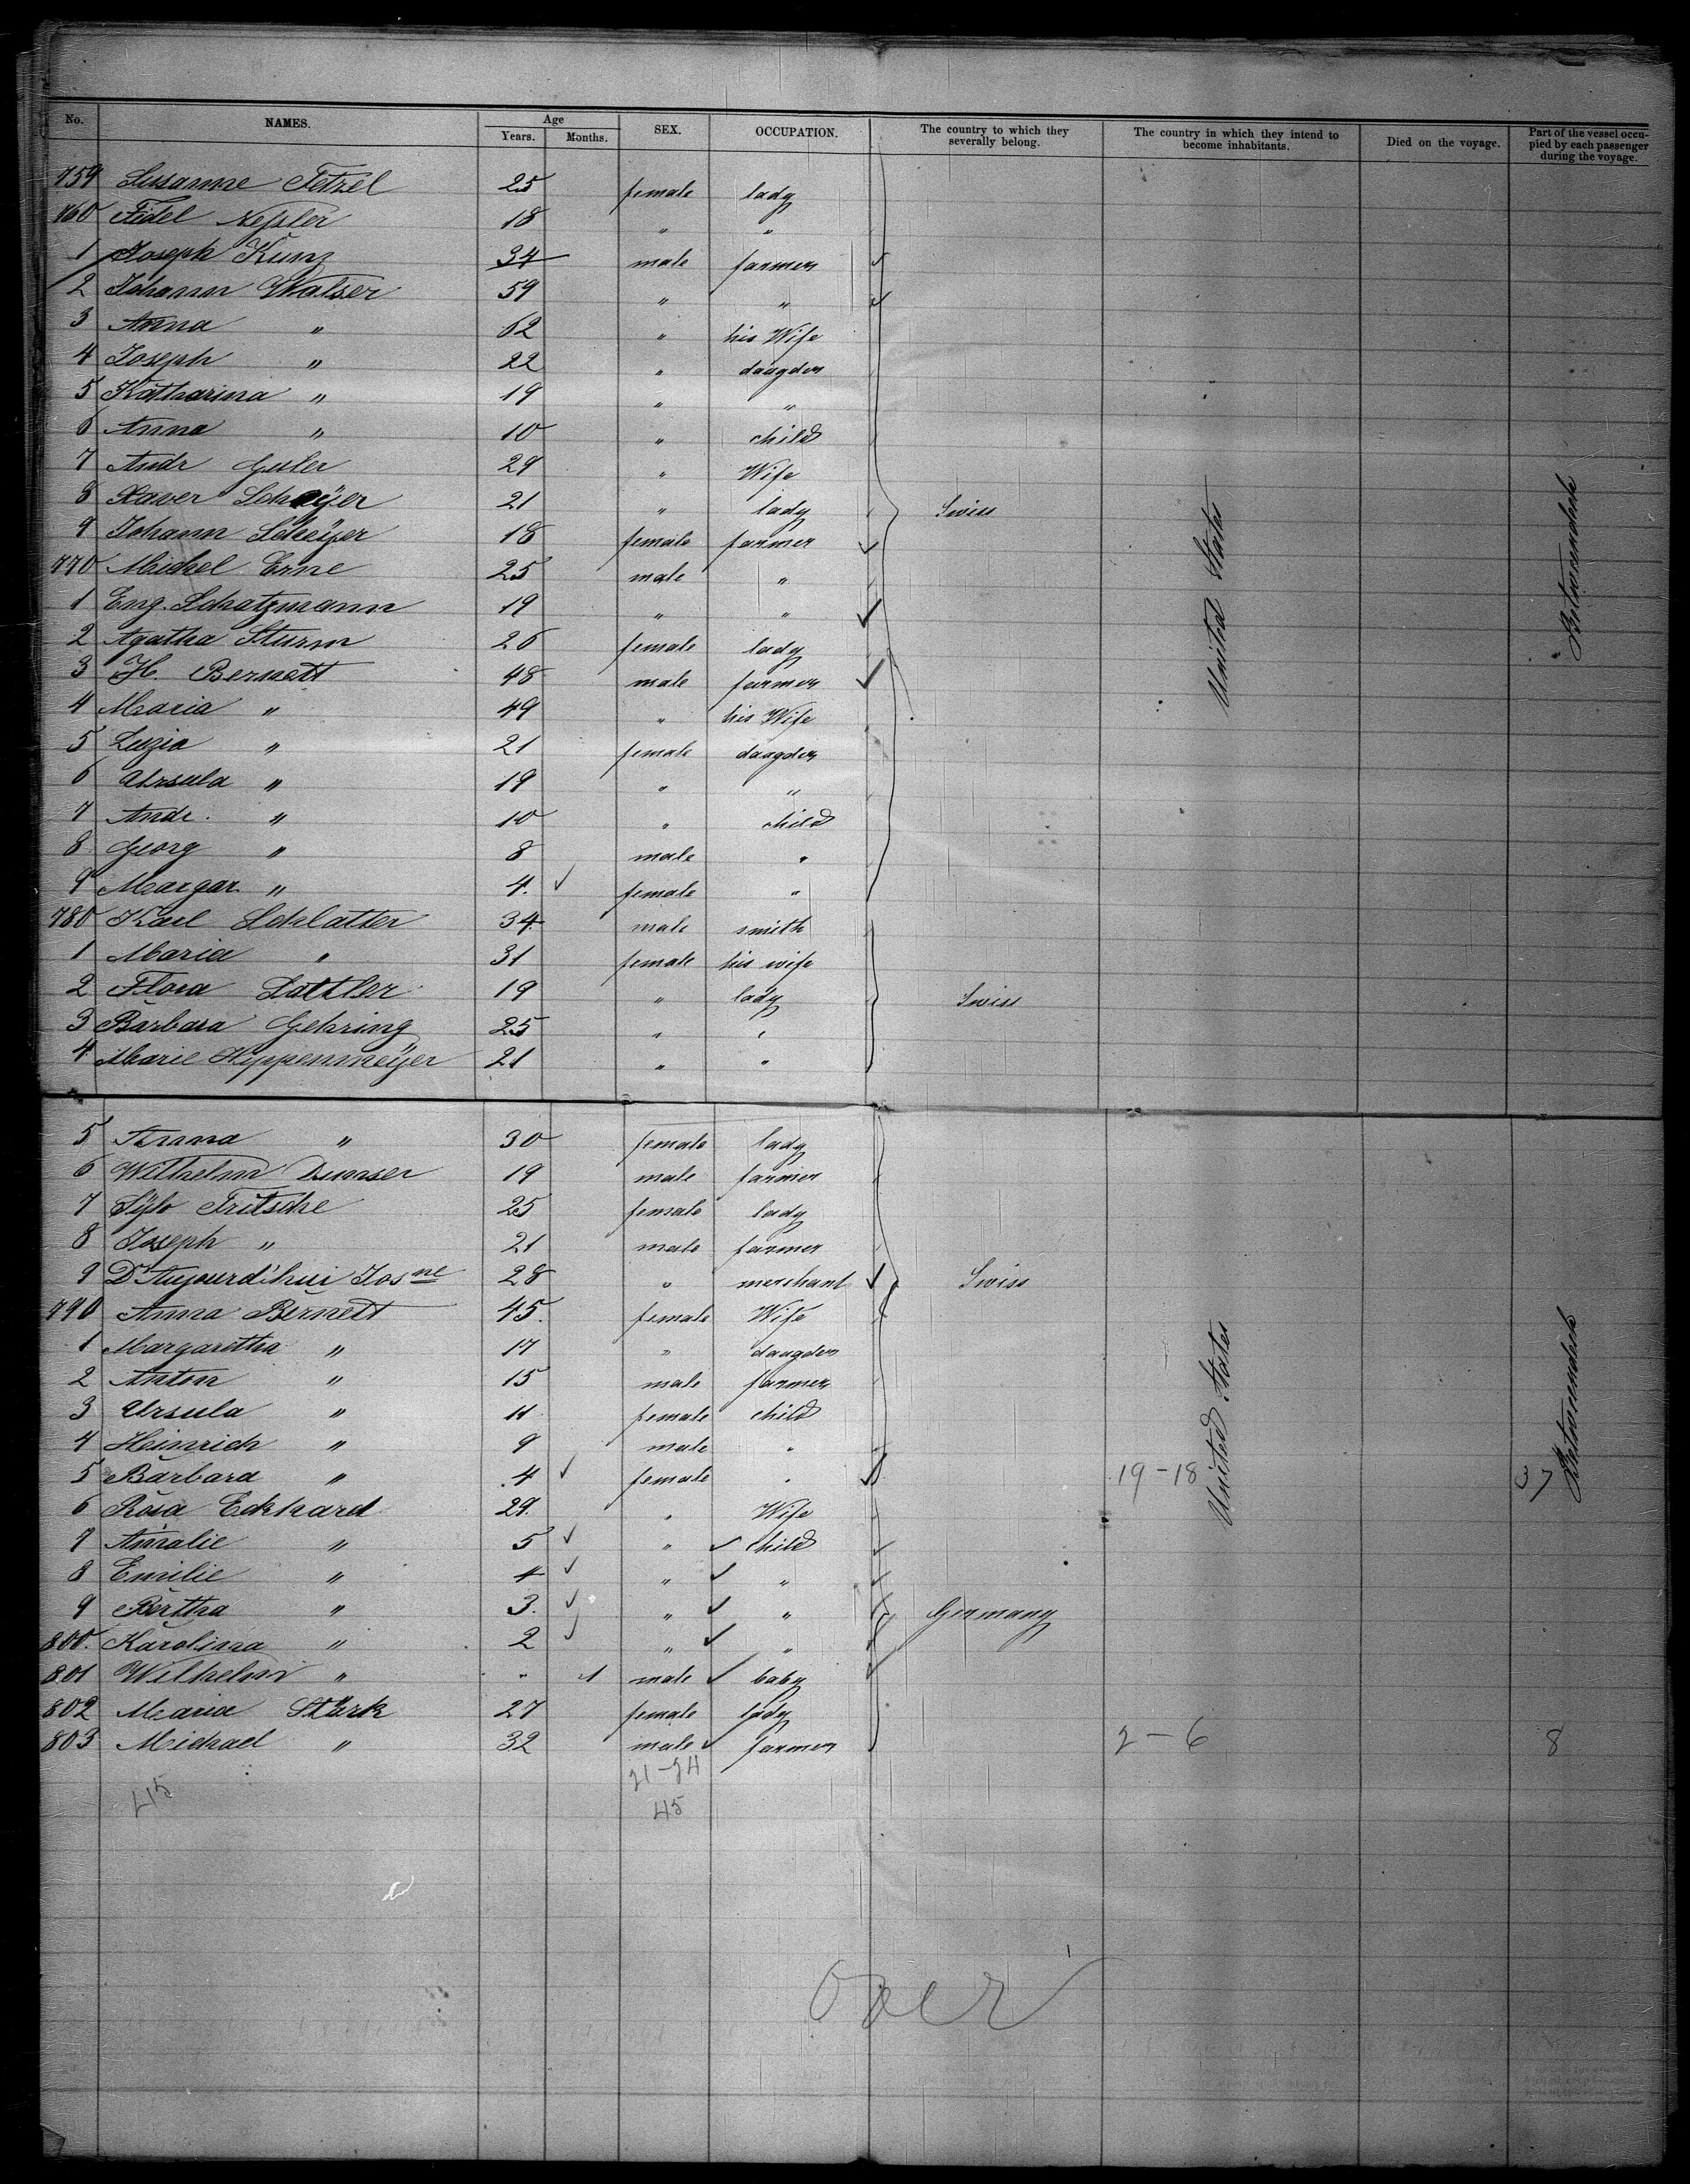 No. NAMES. Age Years. Months. SEX. OCCUPATION. The country to which they severally belong. The country in which they intend to become inhabitants. Died on the voyage. Part of the vessel occupied by each passenger during the voyage.
759 Susanne Fetzel 25 female lady
760 Fidel Nessler 18 " "
1 Joseph Kunz 34 male farmer
2 Johann Walser 59 " "
3 Anna " 62 " his Wife
4 Joseph " 22 " daugder
5 Katharina " 19 " "
6 Anna " 10 " child
7 Andr Guler 29 " Wife
8 Xaver Scheÿer 21 " lady Swiss
9 Johann Scheÿer 18 female farmer
770 Michel Erne 25 male "
1 Eng. Schatzmann 19 " "
2 Agatha Sturm 26 female lady
3 H. Bernett 48 male farmer
4 Maria " 49 " his Wife
5 Luzia " 21 female daugder
6 Ursula " 19 " "
7 Andr. " 10 " child
8 Georg " 8 male "
9 Margar. " 4. female "
780 Karl Schlatter 34. male smith
1 Maria " 31 female his wife
2 Flora Sattler 19 " lady Swiss
3 Barbara Gehring 25 " "
4 Marie Hippenmeÿer 21 " "
United States
Betweendeck
5 Anna " 30 female lady
6 Wilhelm Dumser 19 male farmer
7 Fritsche 25 female lady
8 Joseph " 21 male farmer
9 D'Aujourd'hui Josne 28 " merchant Swiss
790 Anna Bernett 45. female Wife
1 Margaretha " 17 " daugder
2 Anton " 15 male farmer
3 Ursula " 11 female child
4 Heinrich " 9 male "
5 Barbara " 4 female " 19-18 37
6 Rosa Eckhard 29. " Wife
7 Amalie " 5 " child
8 Emilie " 4 " "
9 Bertha " 3. " " Germany
800. Karolina " 2 " "
801 Wilhelm " " 1 male baby
802 Maria Stärk 27 female lady
803 Michael " 32 male farmer 2-6 8
United States
Betweendeck
45 21-24
45
over